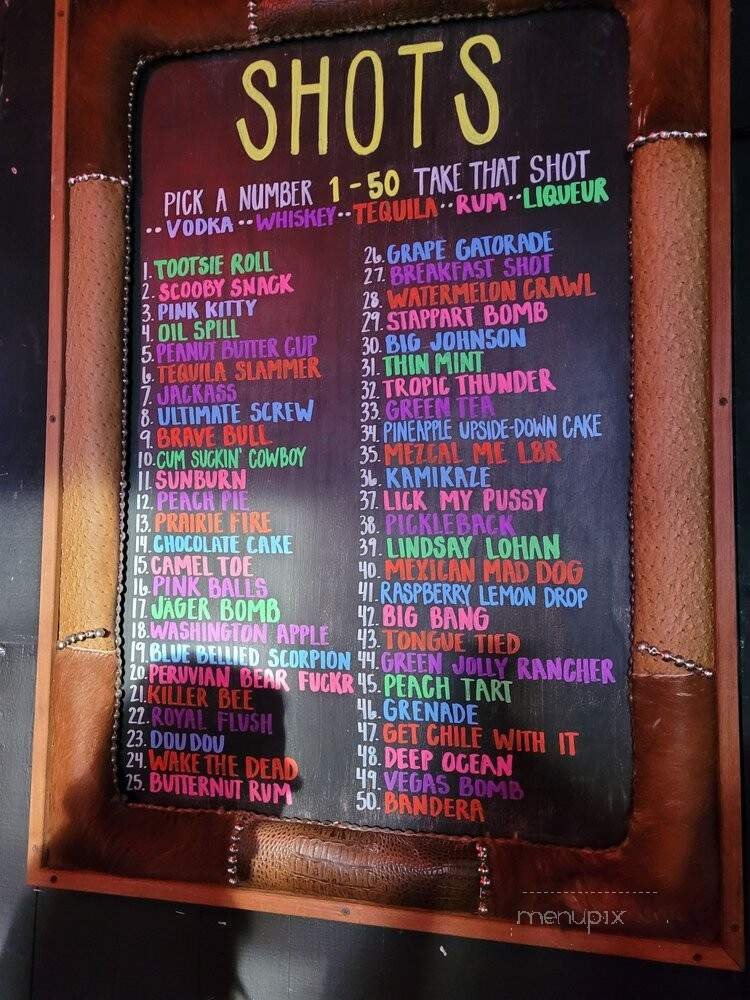 SHOTS
PICK A NUMBER 1-50 TAKE THAT SHOT
··VODKA··WHISKEY··TEQUILA··RUM··LIQUEUR
1. TOOTSIE ROLL
2. SCOOBY SNACK
3. PINK KITTY
4. OIL SPILL
5. PEANUT BUTTER CUP
6. TEQUILA SLAMMER
7. JACKASS
8. ULTIMATE SCREW
9. BRAVE BULL
10. CUM SUCKIN' COWBOY
11. SUNBURN
12. PEACH PIE
13. PRAIRIE FIRE
14. CHOCOLATE CAKE
15. CAMEL TOE
16. PINK BALLS
17. JÄGER BOMB
18. WASHINGTON APPLE
19. BLUE BELLIED SCORPION
20. PERUVIAN BEAR FUCKR
21. KILLER BEE
22. ROYAL FLUSH
23. DOU DOU
24. WAKE THE DEAD
25. BUTTERNUT RUM
26. GRAPE GATORADE
27. BREAKFAST SHOT
28. WATERMELON CRAWL
29. STAPPART BOMB
30. BIG JOHNSON
31. THIN MINT
32. TROPIC THUNDER
33. GREEN TEA
34. PINEAPPLE UPSIDE-DOWN CAKE
35. MEZCAL ME L8R
36. KAMIKAZE
37. LICK MY PUSSY
38. PICKLEBACK
39. LINDSAY LOHAN
40. MEXICAN MAD DOG
41. RASPBERRY LEMON DROP
42. BIG BANG
43. TONGUE TIED
44. GREEN JOLLY RANCHER
45. PEACH TART
46. GRENADE
47. GET CHILE WITH IT
48. DEEP OCEAN
49. VEGAS BOMB
50. BANDERA
menupix